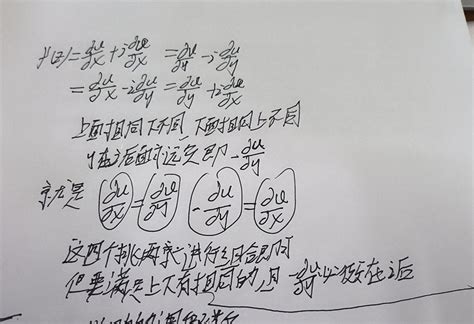 f'(z)=∂u/∂x+i∂v/∂x =∂v/∂y-i∂u/∂y
=∂u/∂x-i∂u/∂y=∂v/∂y+i∂v/∂x
上面相同下不同 下面相同上不同
y在i后面时永远负即-∂u/∂y
京尤是 ∂u/∂x=∂v/∂y -∂u/∂y=∂v/∂x
这四个挑两来进行组合即可
但要满足上下有相同的,且-∂u/∂y必须在i后